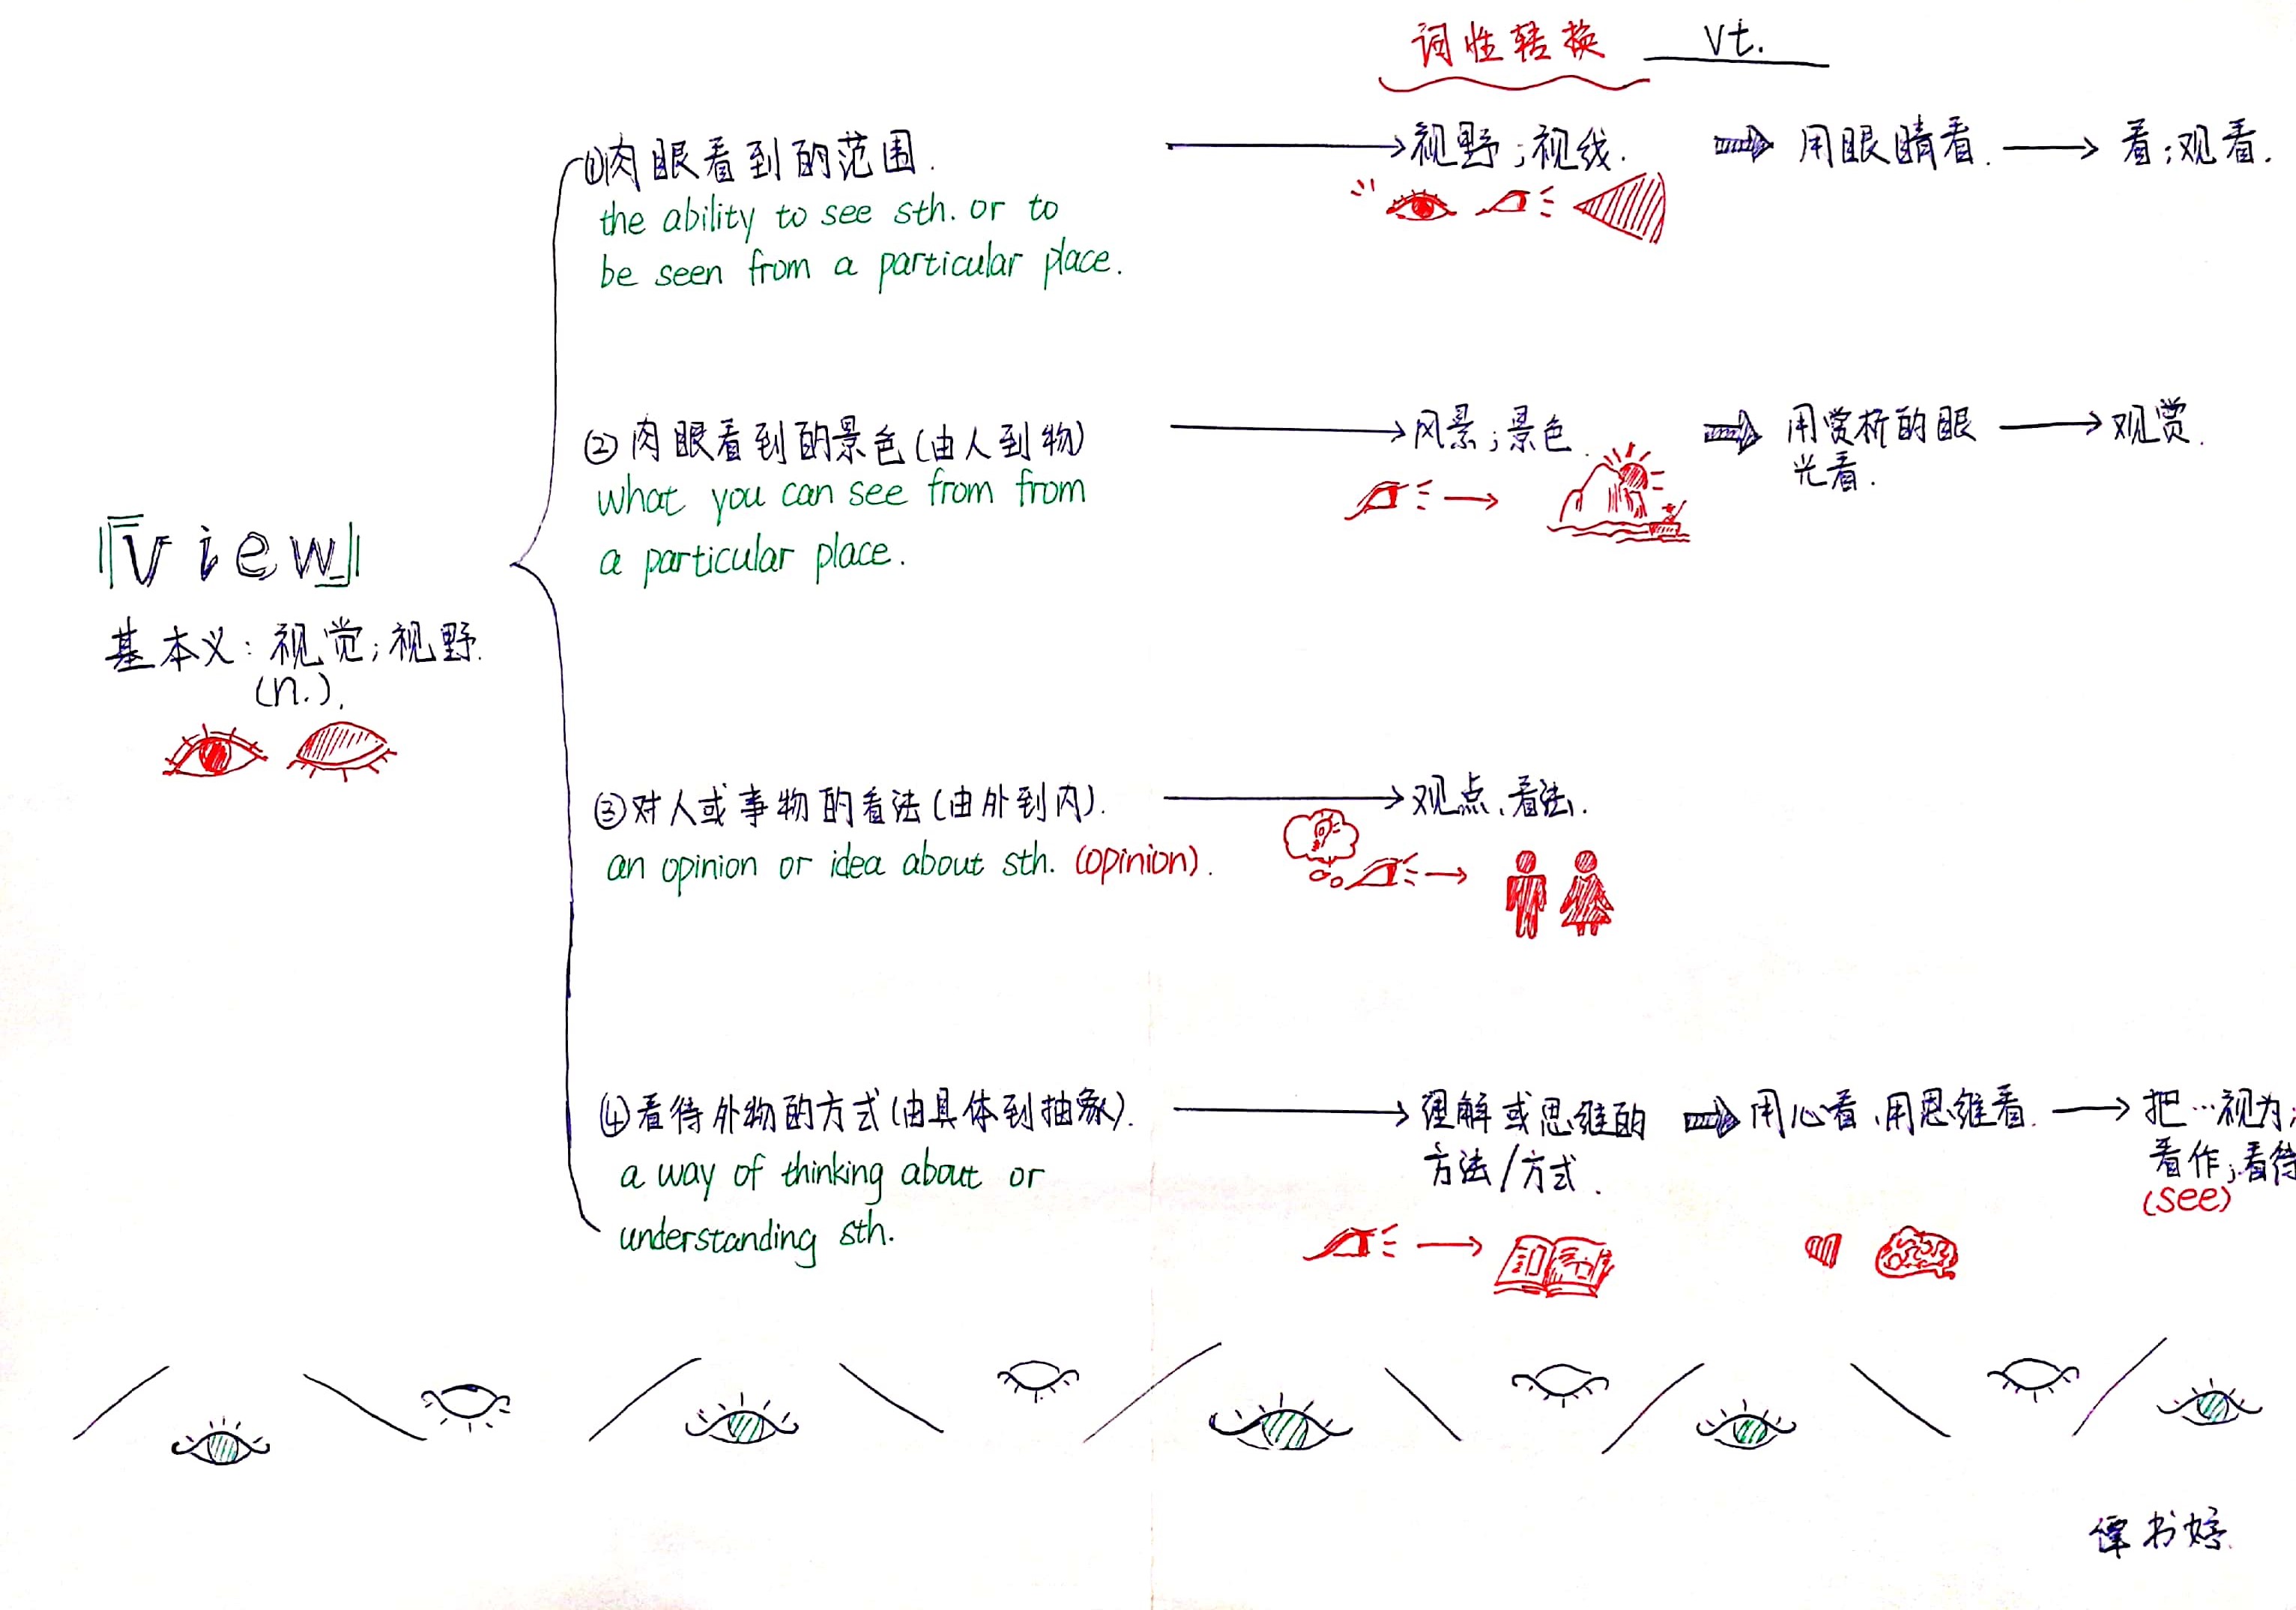 词性转换 vt.
①肉眼看到的范围.
the ability to see sth. or to
be seen from a particular place.
视野;视线.
用眼睛看.
看;观看.
②肉眼看到的景色(由人到物)
what you can see from from
a particular place.
风景;景色.
用赏析的眼
光看.
观赏.
『view』
基本义:视觉;视野.
(n.).
③对人或事物的看法(由外到内).
an opinion or idea about sth. (opinion).
观点、看法.
④看待外物的方式(由具体到抽象).
a way of thinking about or
understanding sth.
理解或思维的
方法/方式.
用心看、用思维看.
把…视为;
看作;看待
(see)
书婷.